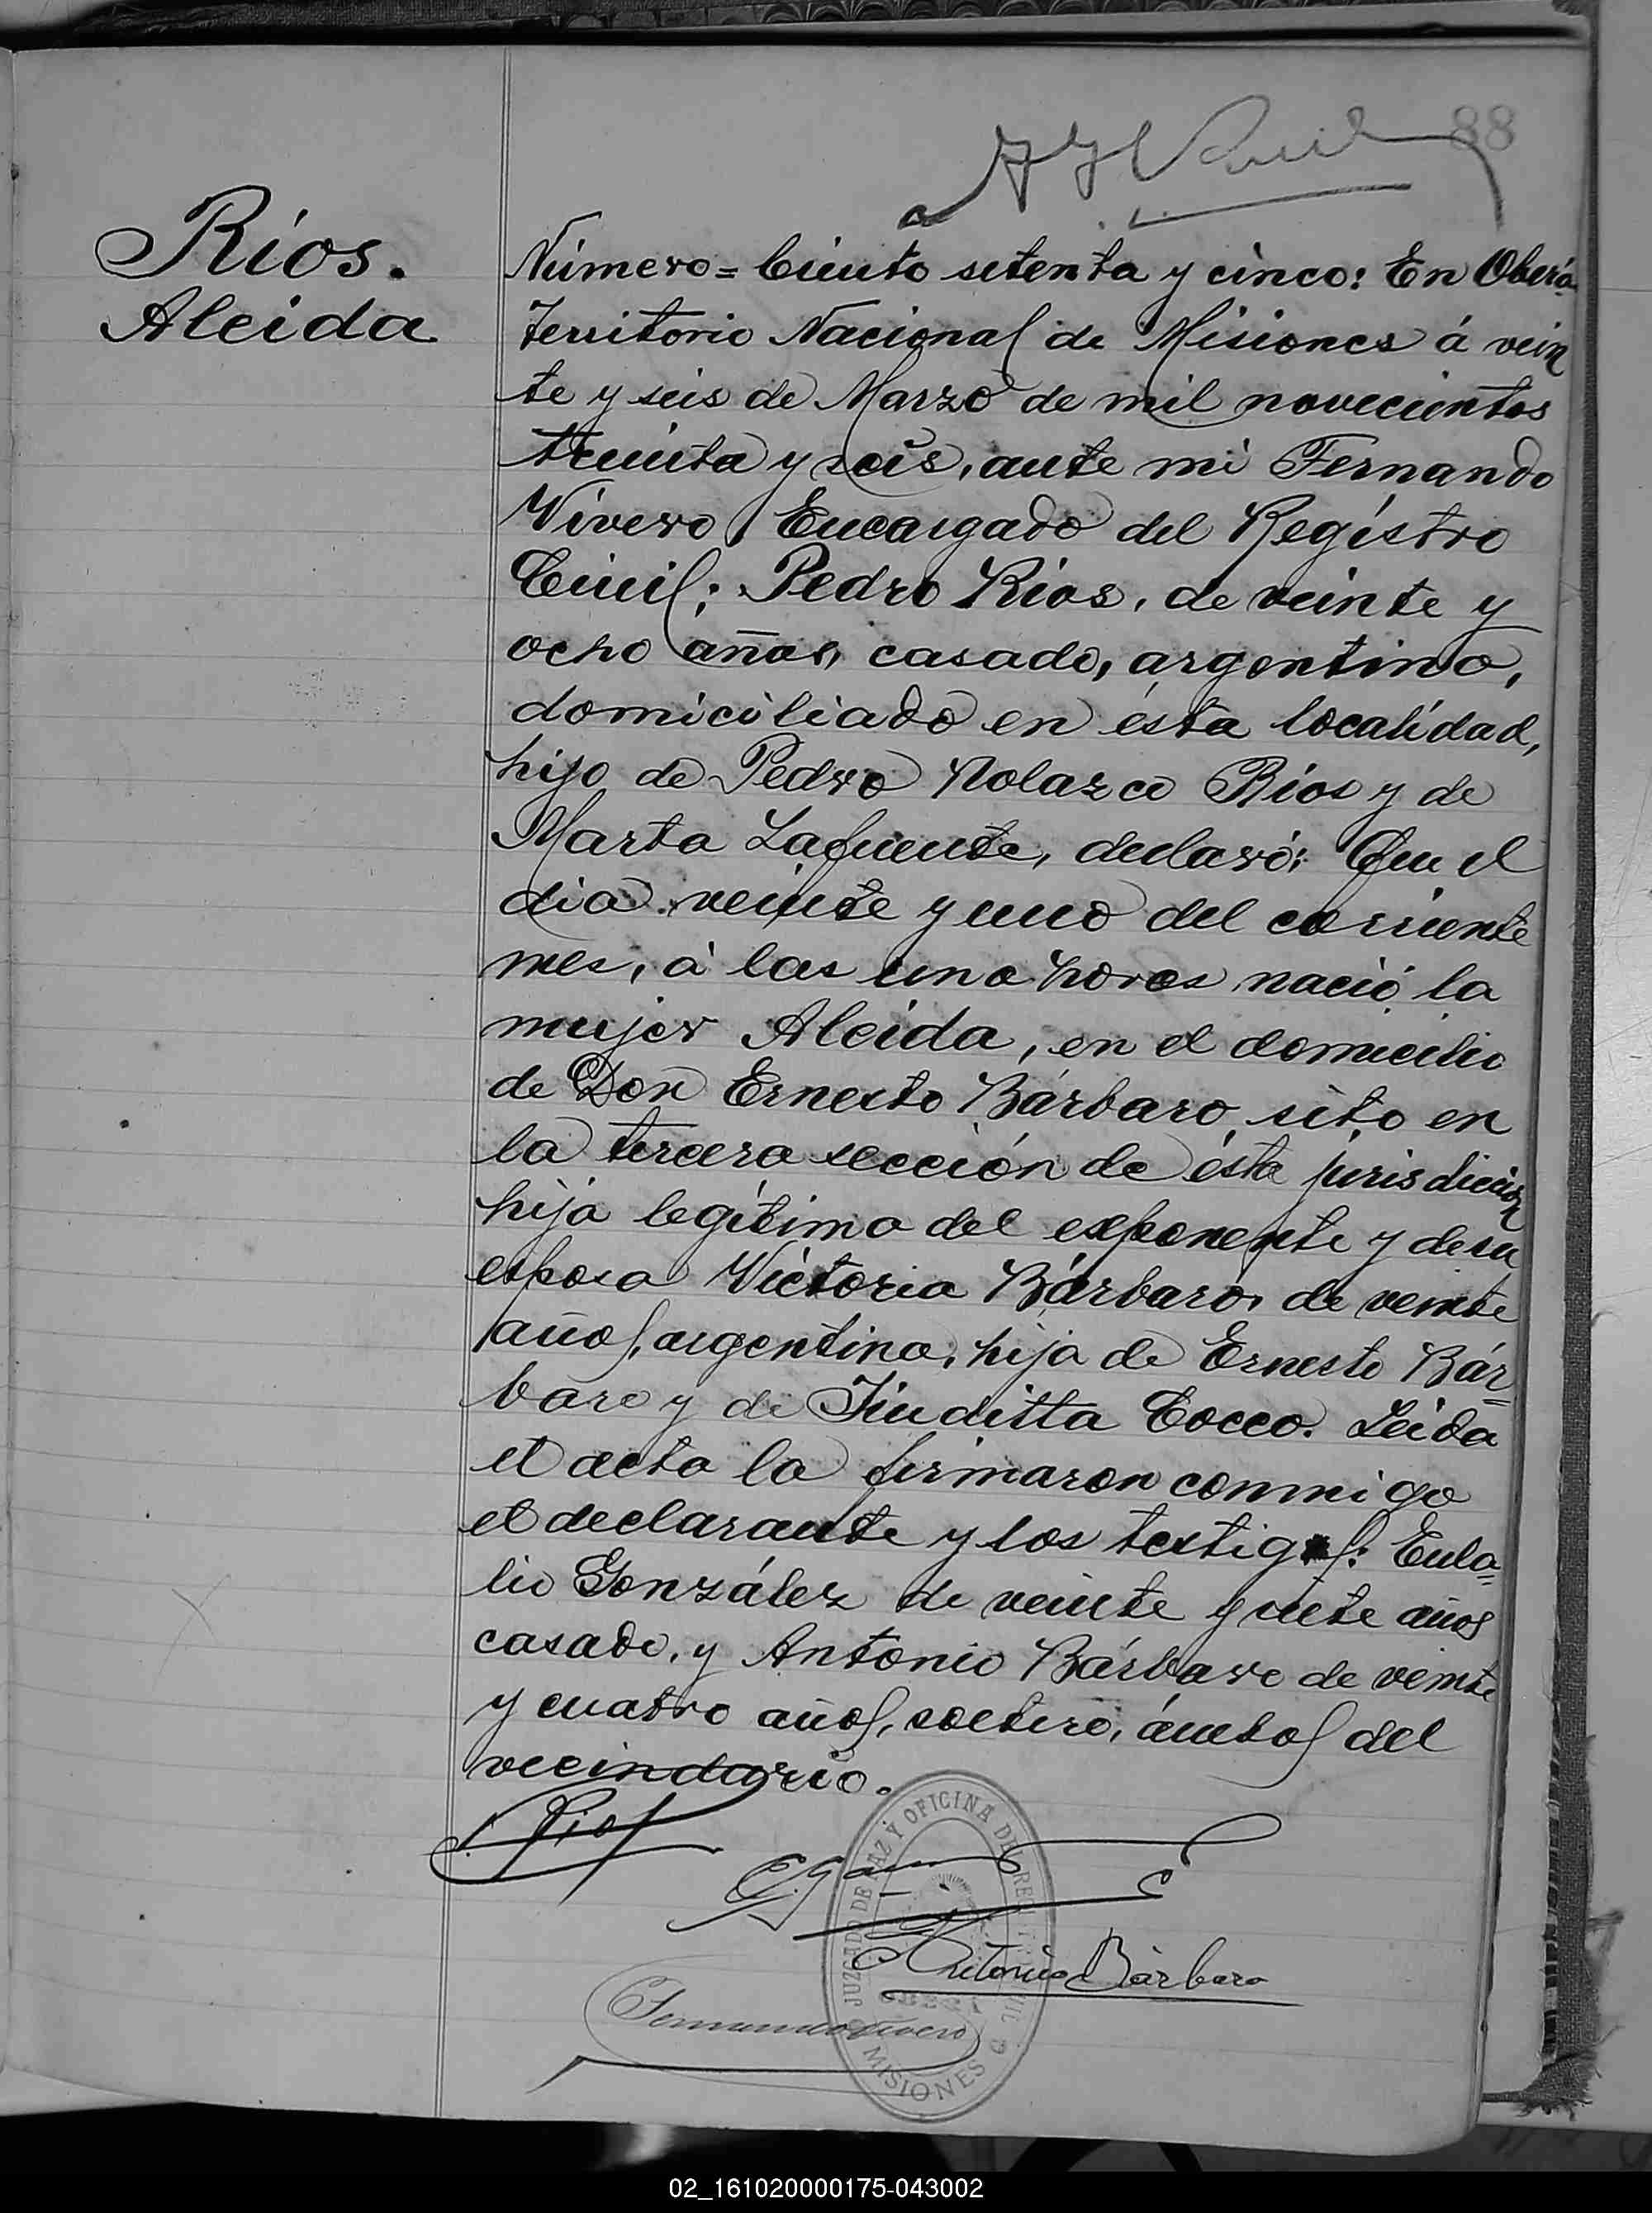 88
Ríos.
Aleida
Número = Ciento setenta y cinco: En Oberá
Territorio Nacional de Misiones á vein
te y seis de Marzo de mil novecientos
treinta y seis, ante mi Fernando
Vivero, Encargado del Registro
Civil; Pedro Ríos, de veinte y
ocho años, casado, argentino,
domiciliado en ésta localidad,
hijo de Pedro Nolazco Ríos y de
Marta Lafuente, declaró: Que el
dia veinte y uno del corriente
mes, á las una horas nació la
mujer Aleida, en el domicilio
de Don Ernesto Bárbaro, sito en
la tercera sección de ésta jurisdicción
hija legítima del exponente y de su
esposa Victoria Bárbaro, de veinte
años, argentina, hija de Ernesto Bár=
baro y de Jiuditta Cocco. Leida
el acta la firmaron conmigo
el declarante y los testigos: Eula=
lio González de veinte y siete años
casado, y Antonio Bárbaro de veinte
y cuatro años, soltero, ámbos del
vecindario.
P. Rios
E. G
Antonio Bárbaro
Fernando Vivero
JUZGADO DE PAZ Y OFICINA DEL REG. CIVIL
OBERA
MISIONES
02_161020000175-043002